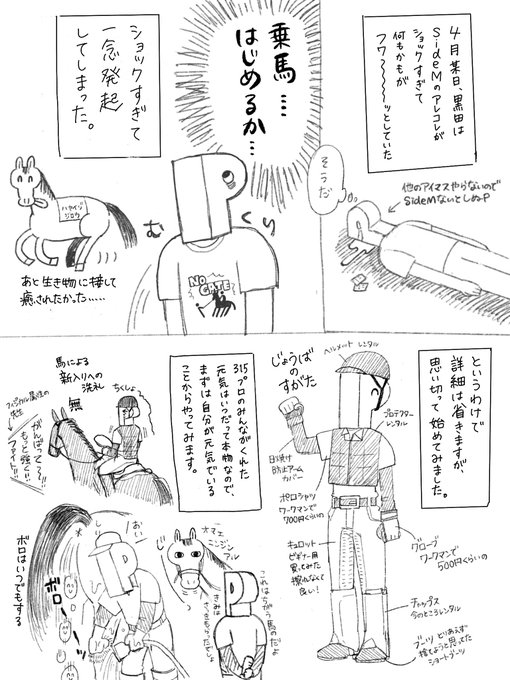 4月某日、黒田は
SideMのアレコレが
ショックすぎて
何もかもが
フワ〜〜〜〜ッとしていた
他のアイマスやらないので
SideMないとしぬP
そうだ
乗馬‥‥
はじめるか‥
むくり
NO GATE
ショックすぎて
一念発起
してしまった。
あと生き物に接して
癒されたかった‥‥‥
というわけで
詳細は省きますが、
思い切って始めてみました。
じょうばの
すがた
ヘルメット レンタル
プロテクター
レンタル
日焼け
防止アーム
カバー
ポロシャツ
ワークマンで
700円くらいの
グローブ
ワークマンで
500円くらいの
キュロット
ビギナー用
買ってみた
擦れなくて
良い!
チャップス
今のところレンタル
ブーツ とりあえず
捨てようと思ってた
ショートブーツ
315プロのみんながくれた
元気はいつだって本物なので、
まずは自分が元気でいる
ことからやってみます。
馬による
新入りへの
洗礼
無
ちくしょう
がんばって〜!!
もっと強く!!
ファイト!!
オマエ
ニンジン
アル
これはちがう馬のだよ
きみは
さっきもらったでしょ
おい
ボロ〜
ボロはいつでもする